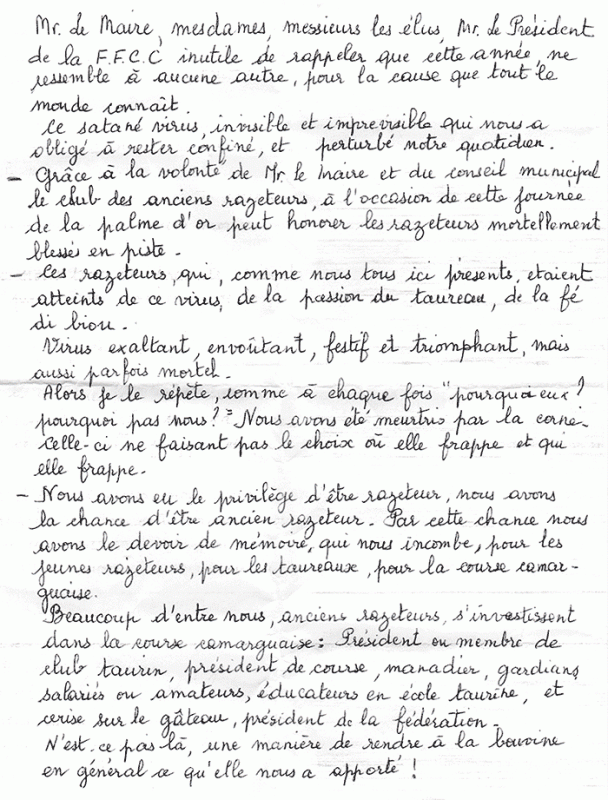 Mr. le Maire, mesdames, messieurs les élus, Mr. le Président
de la F.F.C.C inutile de rappeler que cette année, ne
ressemble à aucune autre, pour la cause que tout le
monde connaît.
Ce satané virus, invisible et imprevisible qui nous a
obligé à rester confiné, et perturbé notre quotidien.
- Grâce à la volonté de Mr le Maire et du conseil municipal
le club des anciens razeteurs, à l'occasion de cette journée
de la palme d'or peut honorer les razeteurs mortellement
blessés en piste.
- Ces razeteurs, qui, comme nous tous ici présents, etaient
atteints de ce virus, de la passion du taureau, de la fé
di biou.
Virus exaltant, envoûtant, festif et triomphant, mais
aussi parfois mortel.
Alors je le répète, comme à chaque fois "pourquoi eux?
pourquoi pas nous?" Nous avons été meurtris par la corne.
Celle-ci ne faisant pas le choix où elle frappe et qui
elle frappe.
- Nous avons eu le privilège d'être razeteur, nous avons
la chance d'être ancien razeteur. Par cette chance nous
avons le devoir de mémoire, qui nous incombe, pour les
jeunes razeteurs, pour les taureaux, pour la course camar-
guaise.
Beaucoup d'entre nous, anciens razeteurs, s'investissent
dans la course camarguaise: Président ou membre de
club taurin, président de course, manadier, gardians
salariés ou amateurs, éducateurs en école taurine, et
cerise sur le gâteau, président de la fédération.
N'est-ce pas là, une manière de rendre à la bouvine
en général ce qu'elle nous a apporté!